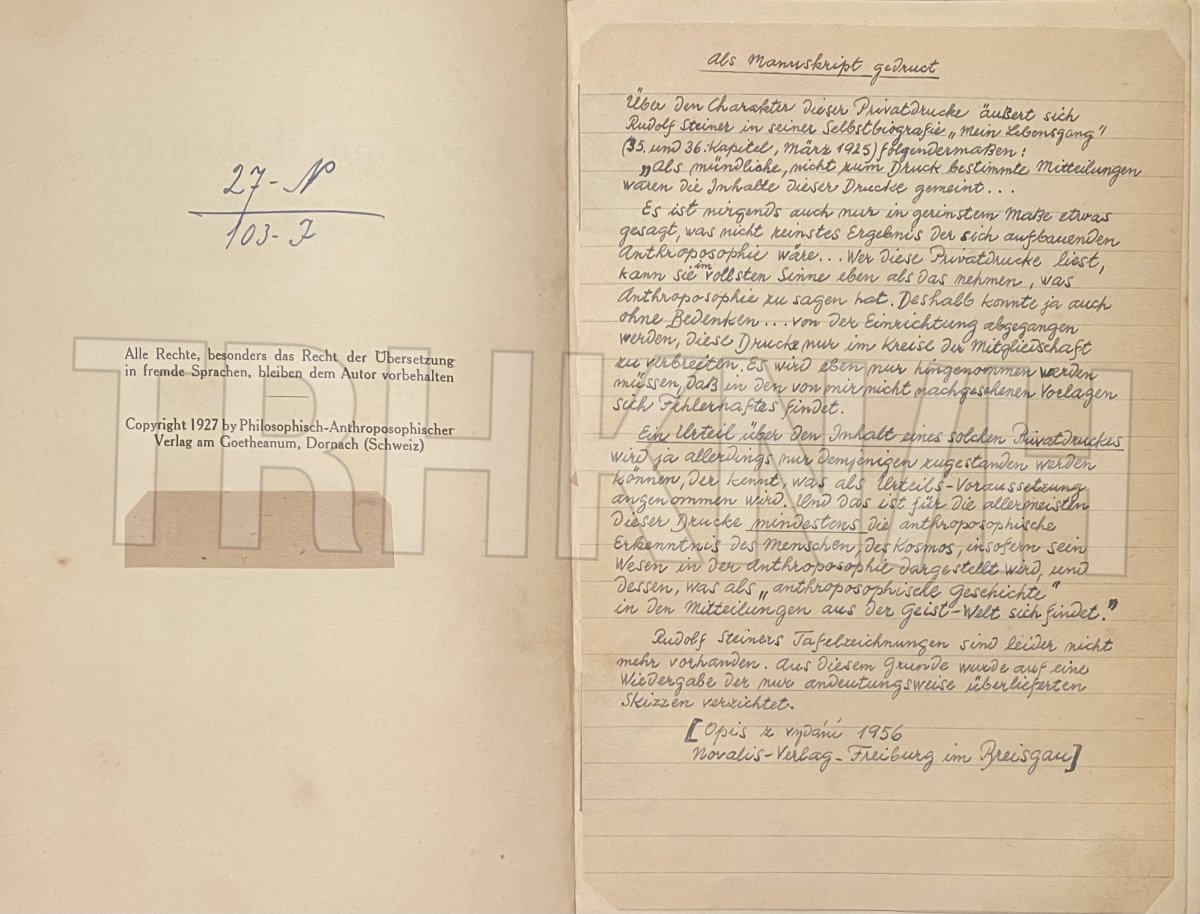 27-N
103-J
Alle Rechte, besonders das Recht der Übersetzung
in fremde Sprachen, bleiben dem Autor vorbehalten
Copyright 1927 by Philosophisch-Anthroposophischer
Verlag am Goetheanum, Dornach (Schweiz)
Als Manuskript gedruct
Über den Charakter dieser Privatdrucke äußert sich
Rudolf Steiner in seiner Selbstbiografie „Mein Lebensgang"
(35. und 36. Kapitel, März 1925) folgendermaßen:
„Als mündliche, nicht zum Druck bestimmte Mitteilungen
waren die Inhalte dieser Drucke gemeint...
Es ist nirgends auch nur in gerinstem Maße etwas
gesagt, was nicht reinstes Ergebnis der sich aufbauenden
Anthroposophie wäre... Wer diese Privatdrucke liest,
kann sie im vollsten Sinne eben als das nehmen, was
Anthroposophie zu sagen hat. Deshalb konnte ja auch
ohne Bedenken... von der Einrichtung abgegangen
werden, diese Drucke nur im Kreise der Mitgliedschaft
zu verbreiten. Es wird eben nur hingenommen werden
müssen, daß in den von mir nicht nachgesehenen Vorlagen
sich Fehlerhaftes findet.
Ein Urteil über den Inhalt eines solchen Privatdruckes
wird ja allerdings nur demjenigen zugestanden werden
können, der kennt, was als Urteils-Voraussetzung
angenommen wird. Und das ist für die allermeisten
dieser Drucke mindestens die anthroposophische
Erkenntnis des Menschen, des Kosmos, insofern sein
Wesen in der Anthroposophie dargestellt wird, und
dessen, was als „anthroposophische Geschichte"
in den Mitteilungen aus der Geist-Welt sich findet."
Rudolf Steiners Tafelzeichnungen sind leider nicht
mehr vorhanden. Aus diesem Grunde wurde auf eine
Wiedergabe der nur andeutungsweise überlieferten
Skizzen verzichtet.
[Opis z vydání 1956
Novalis-Verlag-Freiburg im Breisgau]
TRHKNIH